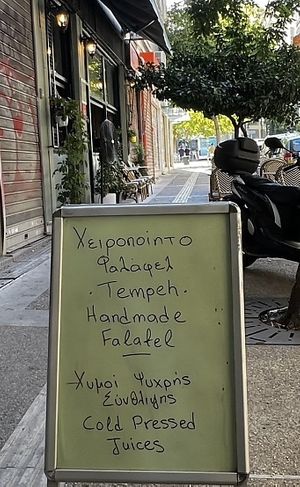 Χειροποίητο
Φαλάφελ
· Tempeh ·
Handmade
Falafel
Χυμοί Ψυχρής
Σύνθλιψης
Cold Pressed
Juices